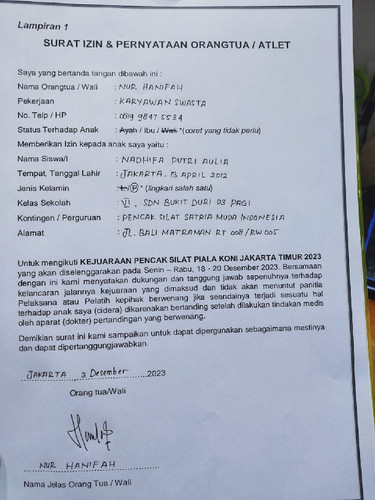 Lampiran 1
SURAT IZIN & PERNYATAAN ORANGTUA / ATLET
Saya yang bertanda tangan dibawah ini :
Nama Orangtua / Wali : NUR HANIFAH
Pekerjaan : KARYAWAN SWASTA
No. Telp / HP : 0819 9847 5534
Status Terhadap Anak : Ayah / Ibu / Wali *(coret yang tidak perlu)
Memberikan Izin kepada anak saya yaitu :
Nama Siswa/i : NADHIFA PUTRI AULIA
Tempat, Tanggal Lahir : JAKARTA, 13 APRIL 2012
Jenis Kelamin : L/P * (lingkari salah satu)
Kelas Sekolah : VI, SDN BUKIT DURI 03 PAGI
Kontingen / Perguruan : PENCAK SILAT SATRIA MUDA INDONESIA
Alamat : JL. BALI MATRAMAN RT 008/RW 005
Untuk mengikuti KEJUARAAN PENCAK SILAT PIALA KONI JAKARTA TIMUR 2023
yang akan diselenggarakan pada Senin – Rabu, 18 - 20 Desember 2023. Bersamaan
dengan ini kami menyatakan dukungan dan tanggung jawab sepenuhnya terhadap
kelancaran jalannya kejuaraan yang dimaksud dan tidak akan menuntut panitia
Pelaksana atau Pelatih kepihak berwenang jika seandainya terjadi sesuatu hal
terhadap anak saya (cidera) dikarenakan bertanding setelah dilakukan tindakan medis
oleh aparat (dokter) pertandingan yang berwenang.
Demikian surat ini kami sampaikan untuk dapat dipergunakan sebagaimana mestinya
dan dapat dipertanggungjawabkan.
JAKARTA 2 Desember 2023
Orang tua/Wali
NUR HANIFAH
Nama Jelas Orang Tua / Wali